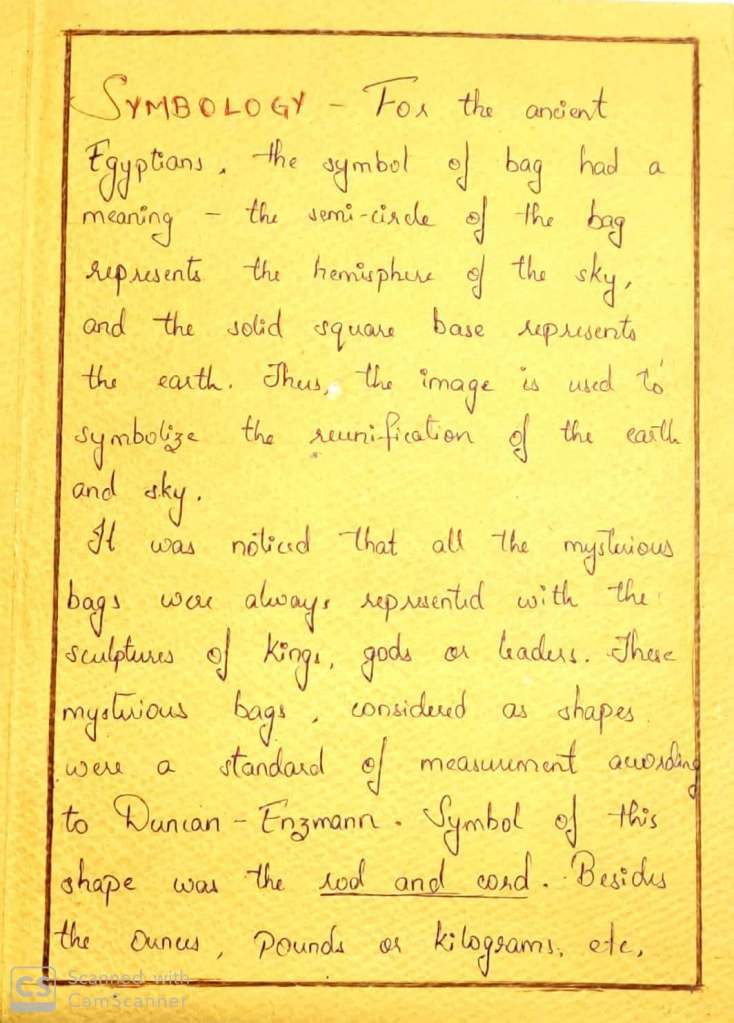 SYMBOLOGY - For the ancient
Egyptians, the symbol of bag had a
meaning - the semi-circle of the bag
represents the hemisphere of the sky,
and the solid square base represents
the earth. Thus, the image is used to
symbolize the reunification of the earth
and sky.
It was noticed that all the mysterious
bags were always represented with the
sculptures of kings, gods or leaders. These
mysterious bags, considered as shapes
were a standard of measurement according
to Duncan - Enzmann. Symbol of this
shape was the rod and cord. Besides
the ounces, pounds or kilograms, etc,
CS Scanned with
CamScanner